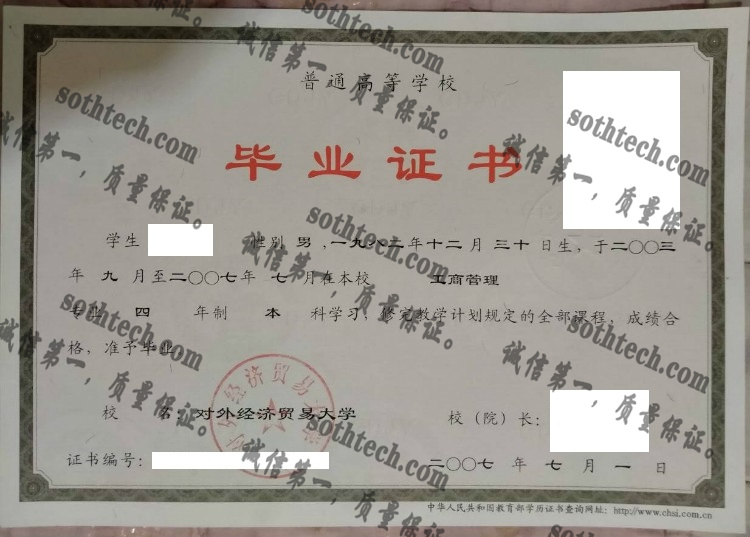 普通高等学校
毕业证书
学生 性别 男 ，一九八二年 十二 月 三十 日生，于二〇〇三
年 九 月至二〇〇七年 七 月在本校 工商管理
专业 四 年制 本 科学习，修完教学计划规定的全部课程，成绩合
格，准予毕业。
校 名：对外经济贸易大学
校（院）长：
证书编号：
二〇〇七 年 七 月 一 日
中华人民共和国教育部学历证书查询网址：http://www.chsi.com.cn
对外经济贸易大学
sothtech.com
诚信第一，质量保证。
sothtech.com
诚信第一，质量保证。
sothtech.com
诚信第一，质量保证。
sothtech.com
诚信第一，质量保证。
sothtech.com
诚信第一，质量保证。
sothtech.com
诚信第一，质量保证。
sothtech.com
诚信第一，质量保证。